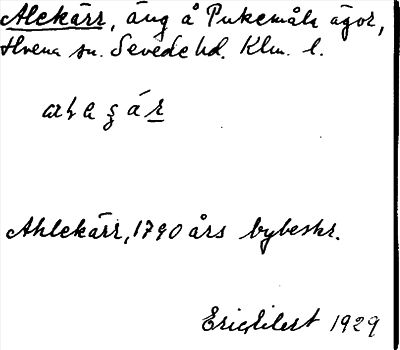 Alekärr, äng å Pukemåla ägor,
Hvena sn. Sevede hd. Klm. l.
Ahlekärr, 1790 års bybeskr.
1929